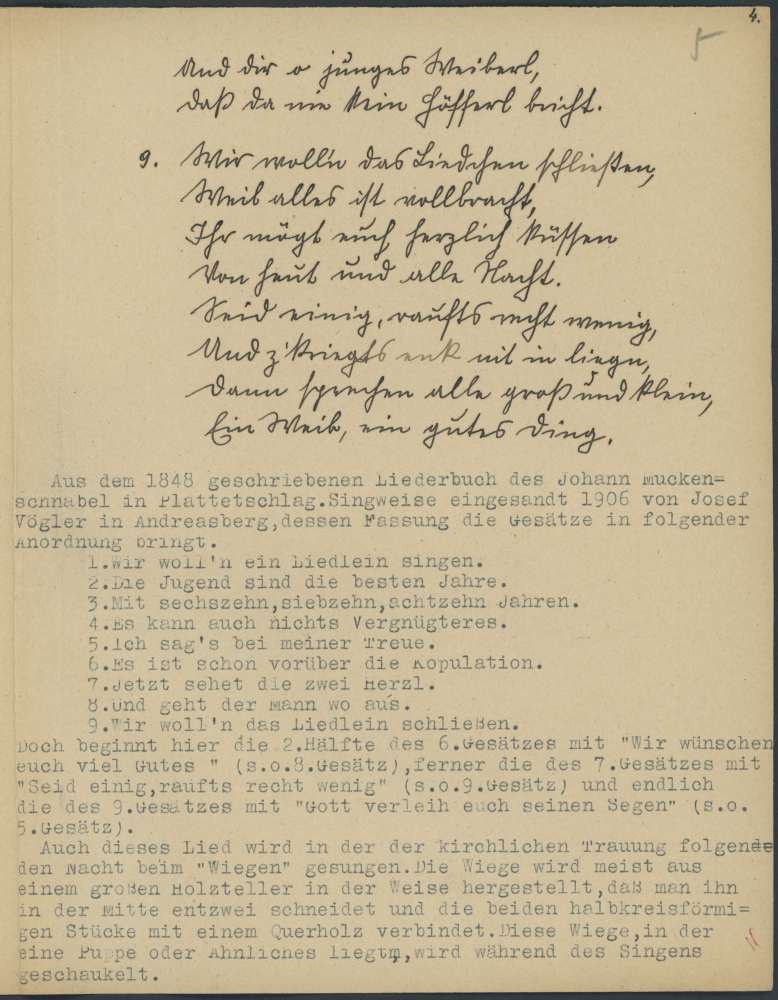 4.
5
Und dir o junges Weiberl,
daß da nie kein Höfferl bricht.
9. Wir woll'n das Liedchen schließen,
Weil alles ist vollbracht,
Ihr mögt euch herzlich küssen
Von heut und alle Nacht.
Seid einig, raufts recht wenig,
Und z'kriegts enk nit in liegn,
Dann sprechen alle groß und klein,
Ein Weib, ein gutes Ding.
Aus dem 1848 geschriebenen Liederbuch des Johann Mucken=
schnabel in Plattetschlag.Singweise eingesandt 1906 von Josef
Vögler in Andreasberg,dessen Fassung die Gesätze in folgender
Anordnung bringt.
1.Wir woll'n ein Liedlein singen.
2.Die Jugend sind die besten Jahre.
3.Mit sechszehn,siebzehn,achtzehn Jahren.
4.Es kann auch nichts Vergnügteres.
5.Ich sag's bei meiner Treue.
6.Es ist schon vorüber die Kopulation.
7.Jetzt sehet die zwei Herzl.
8.Und geht der Mann wo aus.
9.Wir woll'n das Liedlein schließen.
Doch beginnt hier die 2.Hälfte des 6.Gesätzes mit "Wir wünschen
euch viel Gutes " (s.o.8.Gesätz),ferner die des 7.Gesätzes mit
"Seid einig,raufts recht wenig" (s.o.9.Gesätz) und endlich
die des 9.Gesätzes mit "Gott verleih euch seinen Segen" (s.o.
5.Gesätz).
Auch dieses Lied wird in der der kirchlichen Trauung folgende
den Nacht beim "Wiegen" gesungen.Die Wiege wird meist aus
einem großen Holzteller in der Weise hergestellt,daß man ihn
in der Mitte entzwei schneidet und die beiden halbkreisförmi=
gen Stücke mit einem Querholz verbindet.Diese Wiege,in der
eine Puppe oder Ähnliches liegtm,wird während des Singens
geschaukelt.